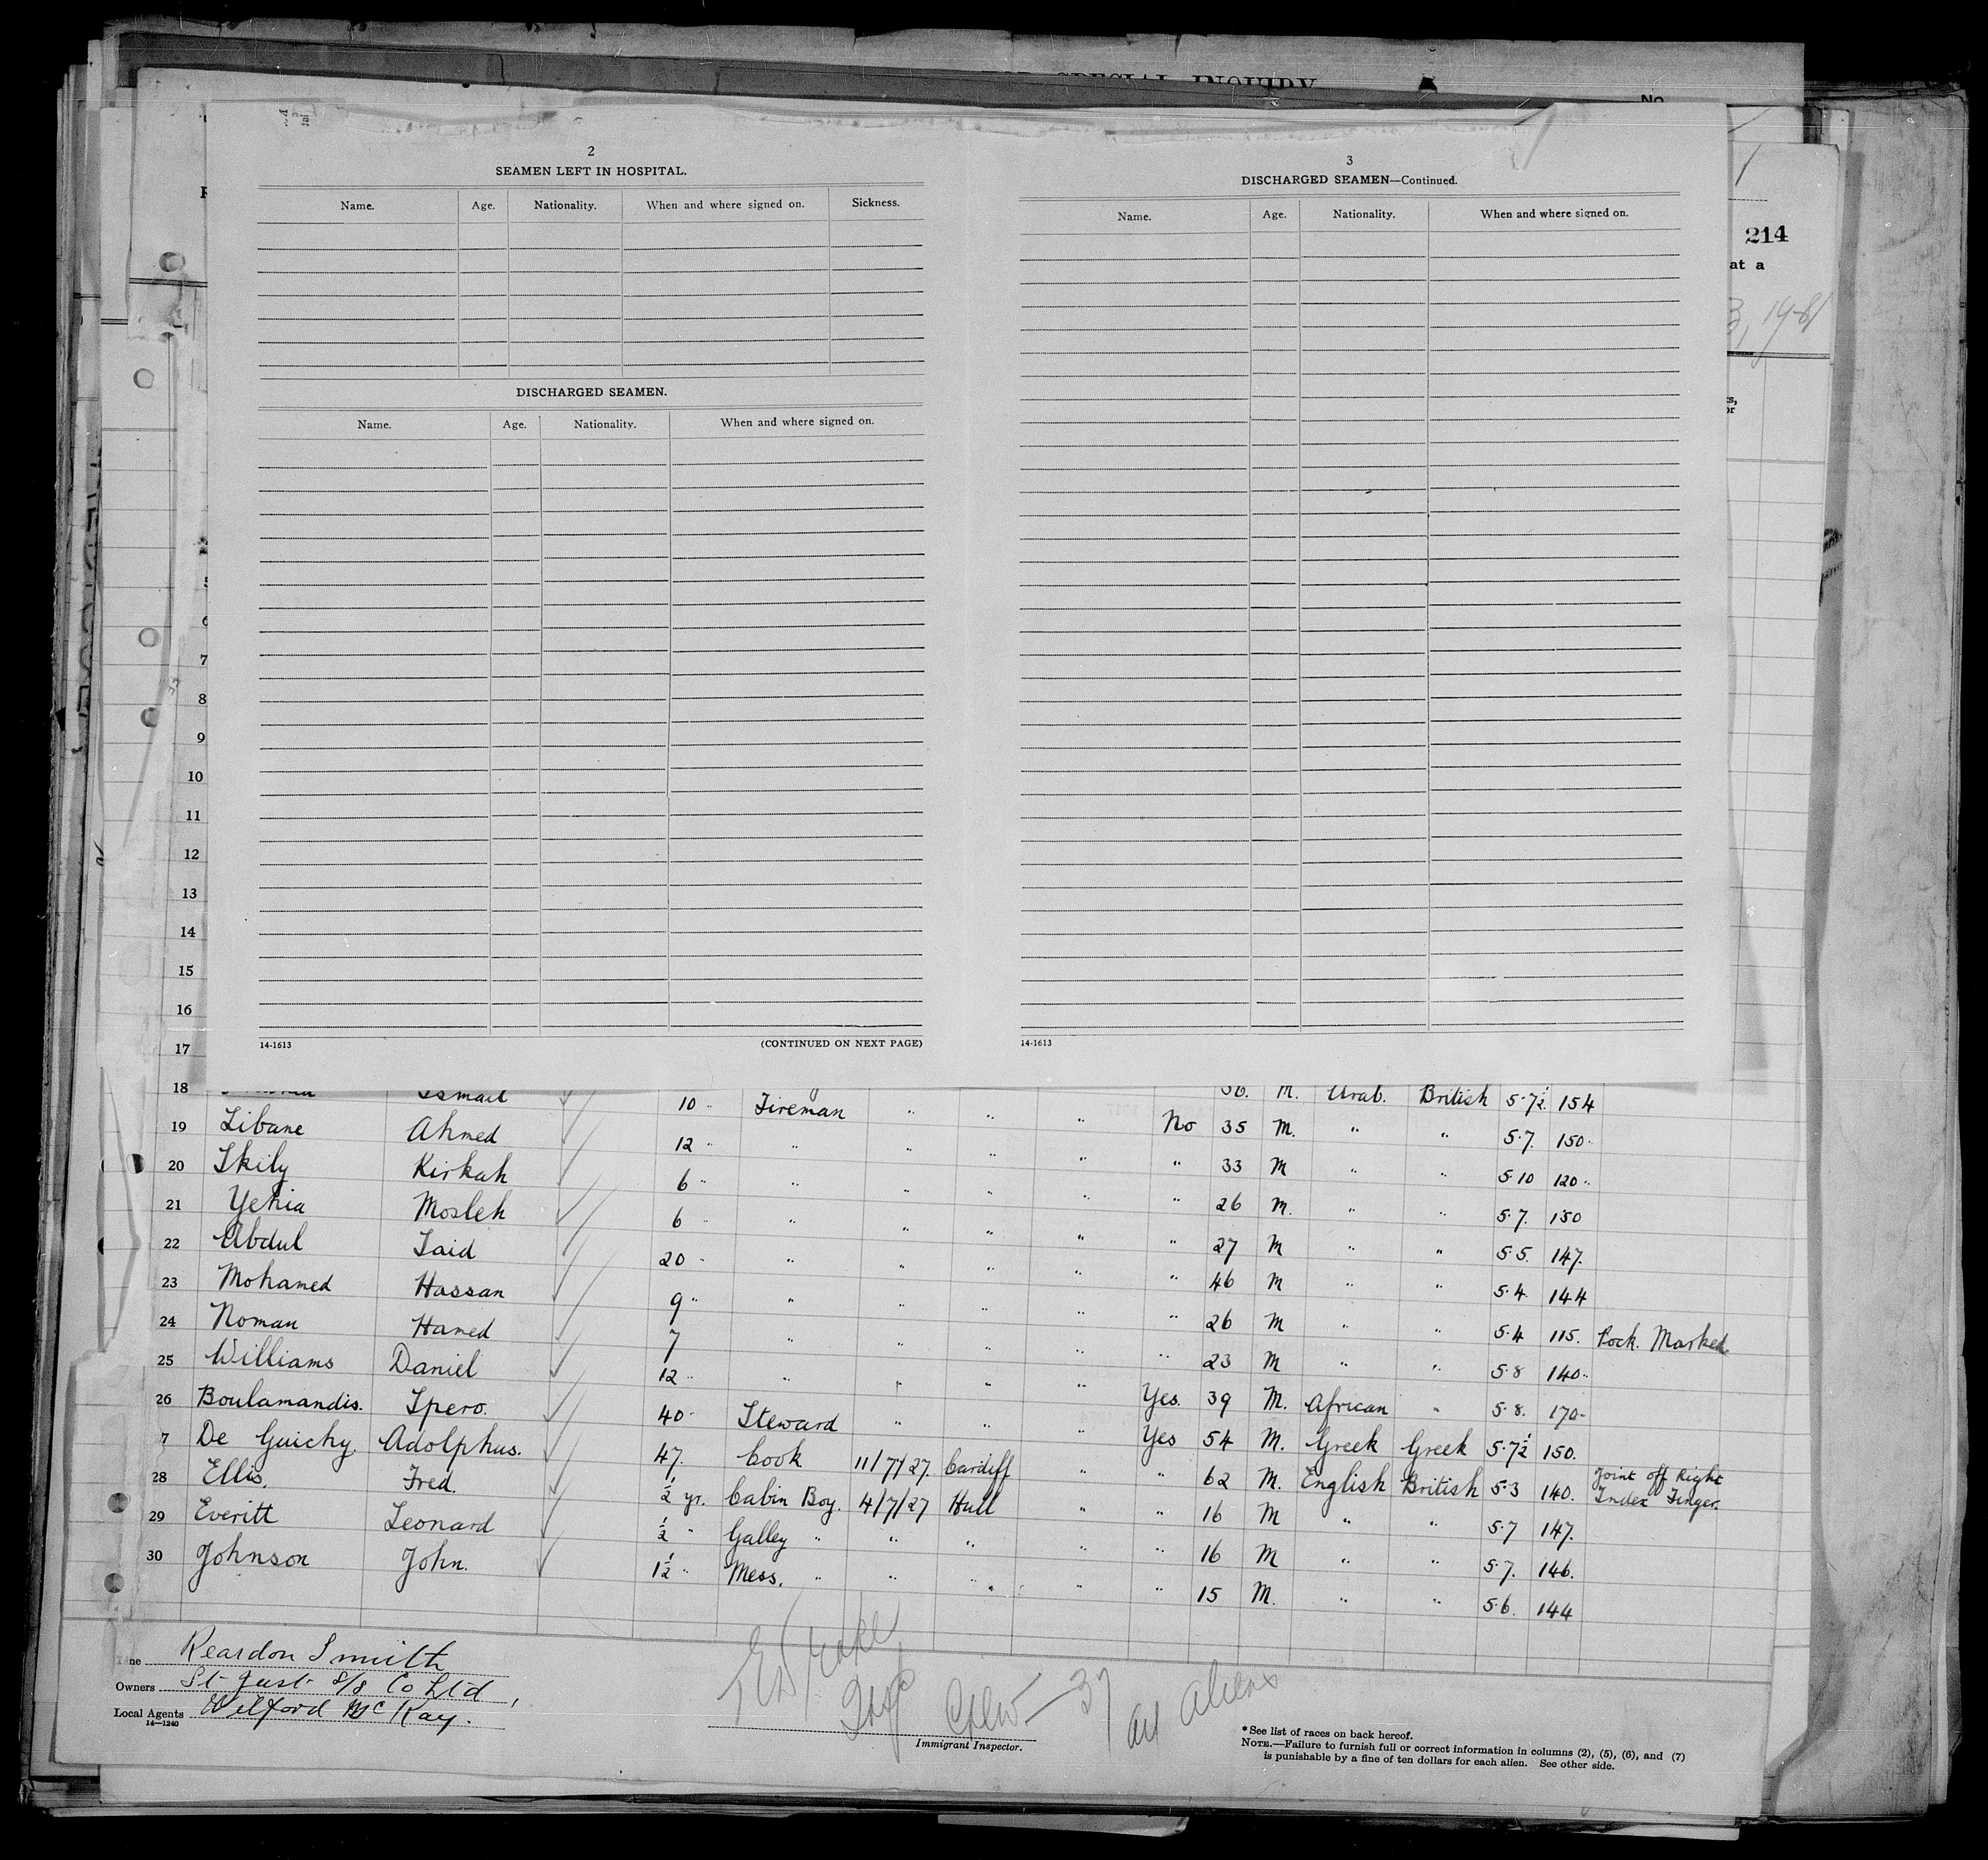 No.
214
at a
2
SEAMEN LEFT IN HOSPITAL.
Name. Age. Nationality. When and where signed on. Sickness.
DISCHARGED SEAMEN.
Name. Age. Nationality. When and where signed on.
14-1613 (CONTINUED ON NEXT PAGE)
3
DISCHARGED SEAMEN—Continued.
Name. Age. Nationality. When and where signed on.
14-1613
5
6
7
8
9
10
11
12
13
14
15
16
17
18 Ismail 10 " Fireman " " " 36. M. Arab. British 5·7½. 154
19 Libane Ahmed 12 " " " " " No 35 M. " " 5·7. 150
20 Skily Kirkah 6 " " " " " " 33 M " " 5·10 120
21 Yehia Mosleh 6 " " " " " " 26 M. " " 5·7. 150
22 Abdul Said 20 " " " " " " 27 M " " 5·5. 147.
23 Mohamed Hassan 9 " " " " " " 46 M " " 5·4. 144
24 Noman Hamed 7 " " " " " 26 M " " 5·4 115. Pock. Marked.
25 Williams Daniel 12 " " " " " " 23 M " " 5·8 140
26 Boulamandis. Spero. 40 " Steward " " " Yes. 39 M. African " 5·8. 170
7 De Guichy. Adolphus. 47. Cook 11/7/27. Cardiff " Yes 54 M. Greek Greek 5·7½ 150.
28 Ellis. Fred. ½ yr. Cabin Boy. 4/7/27 Hull " " 62 M. English British 5·3 140. Joint off Right Index Finger.
29 Everitt Leonard ½ " Galley " " " " " 16 M " " 5·7 147.
30 Johnson John. 1½ " Mess. " " " " " 16 M " " 5·7. 146.
15 M. " " 5·6. 144
Reardon Smith
Owners St Just S/S Co Ltd,
Local Agents Welford McKay.
14—1240
Crew — 37
all aliens
Immigrant Inspector.
*See list of races on back hereof.
NOTE.—Failure to furnish full or correct information in columns (2), (5), (6), and (7)
is punishable by a fine of ten dollars for each alien. See other side.